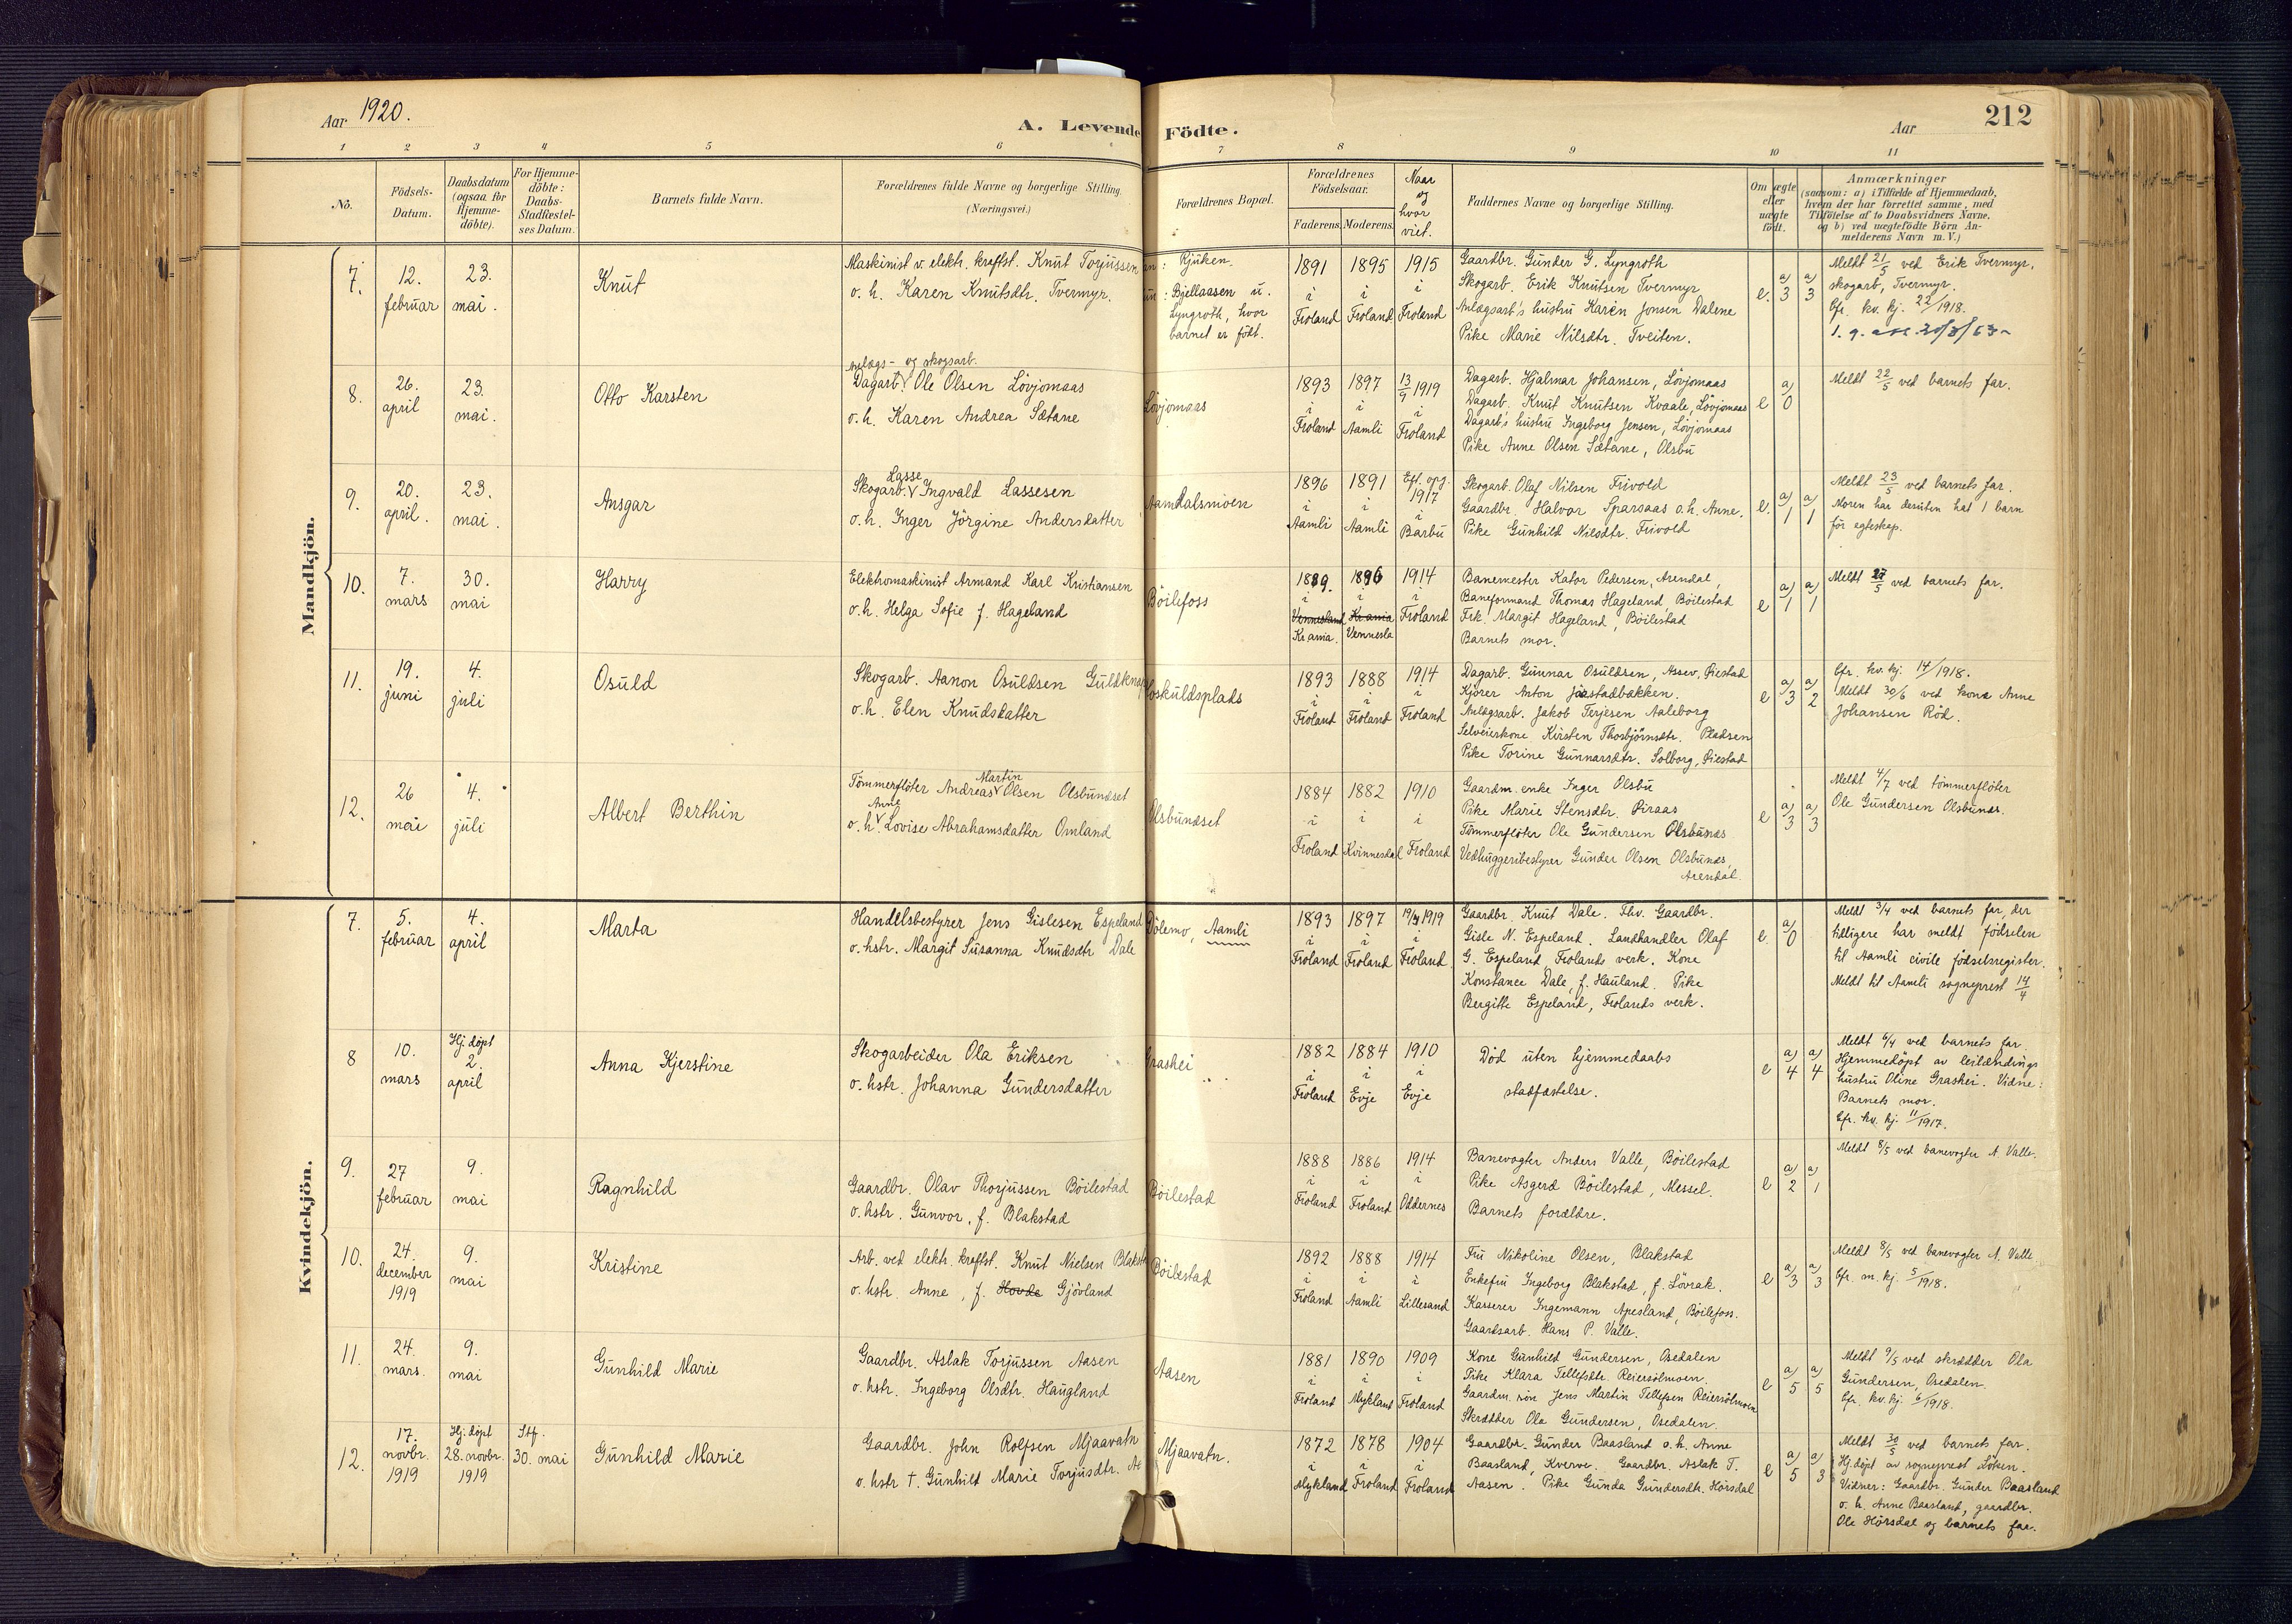 Aar 1920.
A. Levende Födte.
Aar
212
1 2 3 4 5 6 7 8 9 10 11
No.
Födsels-Datum.
Daabsdatum (ogsaa for Hjemme-döbte).
For Hjemme-döbte: Daabs-Stadfæstel-ses Datum.
Barnets fulde Navn.
Forældrenes fulde Navne og borgerlige Stilling. (Næringsvei.)
Forældrenes Bopæl.
Forældrenes Födselsaar.
Faderens. Moderens.
Naar og hvor viet.
Faddernes Navne og borgerlige Stilling.
Om ægte eller uægte födt.
Anmærkninger
(saasom: a) i Tilfælde af Hjemmedaab,
hvem der har forrettet samme, med
Tilföielse af to Daabsvidners Navne,
og b) ved uægtefödte Börn An-
melderens Navn m. V.)
Mandkjön.
7. 12. februar 23. mai. Knut
Maskinist v. elektr. kraftst. Knut Torjussen
o. h. Karen Knutsdtr. Tvermyr.
Rjuken.
Bjellaasen u.
Lyngroth, hvor
barnet er født.
1891 i Froland 1895 i Froland 1915 i Froland
Gaardbr. Gunder G. Lyngroth
Skogarb. Erik Knutsen Tvermyr
Anlægsarb's hustru Karen Jonsen Dalene
Pike Marie Nilsdtr. Tveiten.
e. a) 3 a) 3
Meldt 21/5 ved Erik Tvermyr,
skogarb, Tvermyr.
Cfr. kv. kj. 22/1918.
8. 26. april 23. mai. Otto Karsten
anlægs- og skogsarb.
Dagarb. Ole Olsen Lövjomaas
o. h. Karen Andrea Sætane
Lövjomaas
1893 i Froland 1897 i Aamli 13/9 1919 i Froland
Dagarb. Hjalmar Johansen, Lövjomaas
Dagarb. Knut Knutsen Kvaale, Lövjomaas
Dagarb's hustru Ingeborg Jensen, Lövjomaas
Pike Anne Olsen Sætane, Olsbu
e a) 0
Meldt 22/5 ved barnets far.
9. 20. april. 23. mai. Ansgar
Lasse
Skogarb. Ingvald Lassesen
o. h. Inger Jörgine Andersdatter
Aamdalsmoen
1896 i Aamli 1891 i Aamli Eft. opg. 1917 i Barbu
Skogarb. Olaf Nilsen Frivold
Gaardbr. Halvor Sparsaas o. h. Anne.
Pike Gunhild Nilsdtr. Frivold
e. a) 1 a) 1
Meldt 23/5 ved barnets far.
Moren har desuten hat 1 barn
før egteskap.
10. 7. mars 30. mai Harry
Elektromaskinist Armand Karl Kristiansen
o. h. Helga Sofie f. Hageland
Böilefoss
1889. i Vennesland Kr.ania. 1896 i Kr.ania Vennesla 1914 i Froland
Banemester Kator Pedersen, Arendal,
Baneformand Thomas Hageland, Böilestad
Frk. Margit Hageland, Böilestad
Barnets mor.
e a) 1 a) 1
Meldt 27/5 ved barnets far.
11. 19. juni 4. juli Osuld
Skogarb. Aanon Osuldsen
o. h. Elen Knudsdatter
1893 i Froland 1888 i Froland 1914 i Froland
Dagarb. Gunnar Osuldsen, Assev, Risstad
Kjører Anton
Anlægsarb. Jakob Terjesen Aaleborg
Selveierkone Kirsten Thorbjörnsdtr. Pladsen
Pike Torine Gunnarsdtr. Solborg,
e a) 3 a) 2
Cfr. kv. kj. 14/1918.
Meldt 30/6 ved kone Anne
Johansen Röd.
12. 26 mai 4. juli Albert Berthin
Martin
Tömmerflöter Andreas Olsen Olsbundset
Anne
o. h. Lovise Abrahamsdatter Omland
Olsbundset
1884 i Froland 1882 i Kvinnesdal 1910 i Froland
Gaardm. enke Inger Olsbu
Pike Marie Stensdtr. Piraas
Tömmerflöter Ole Gundersen Olsbunds
Vedhuggeribestyrer Gunder Olsen Olsbunds,
Arendal.
e a) 3 a) 3
Meldt 4/7 ved tømmerfløter
Ole Gundersen Olsbunds.
Kvindekjön.
7. 5. februar 4. april Marta
Handelsbestyrer Jens Gislesen Espeland
o. hstr. Margit Susanna Knudsdtr Dale
Dölemo, Aamli
1893 i Froland 1897 i Froland 1919 i Froland
Gaardbr. Knut Dale. Fhv. Gaardbr.
Gisle N. Espeland. Landhandler Olaf
G. Espeland, Frolands verk. Kone
Konstance Dale, f. Hauland. Pike
Bergitte Espeland, Frolands verk.
e. a) 0
Meldt 3/4 ved barnets far, der
tidligere har meldt födselen
til Aamli civile födselsregister.
Meldt til Aamli sogneprest 14/4
8 10. mars Hj. døpt 2. april Anna Kjerstine
Skogarbeider Ola Eriksen
o. hstr. Johanna Gundersdatter
Graskei
1882 i Froland 1884 i Evje 1910 i Evje
Död uten hjemmedaabs
stadfæstelse.
e a) 4 a) 4
Meldt 6/4 ved barnets far.
Hjemmedöpt av leilændings
hustru Oline Graskei. Vidne:
Barnets mor.
Cfr. kv. kj. 11/1917.
9. 27 februar 9. mai Ragnhild
Gaardbr. Olav Thorjussen Böilestad
o. hstr. Gunvor, f. Blakstad
Böilestad
1888 i Froland 1886 i Froland 1914 i Oddernes
Banevogter Anders Valle, Böilestad
Pike Asgerd Böilestad, Messel.
Barnets forældre.
e a) 2 a) 1
Meldt 8/5 ved banevogter A Valle.
10. 24. december 1919 9. mai Kristine
Arb. ved elektr. kraftst. Knut Nielsen
o. hstr. Anne, f. Hovde Gjövland
Böilestad
1892 i Froland 1888 i Aamli 1914 i Lillesand
Fru Nikoline Olsen, Blakstad
Enkefru Ingeborg Blakstad, f. Lövrak.
Kasserer Ingemann Apesland, Böilefoss.
Gaardsarb. Hans P. Valle.
e a) 3 a) 3
Meldt 8/5 ved banevogter A. Valle
Cfr. m. kj. 5/1918.
11. 24. mars. 9. mai Gunhild Marie
Gaardbr. Aslak Torjussen Aasen
o. hstr. Ingeborg Olsdtr. Haugland
Aasen
1881 i Froland 1890 i Mykland 1909 i Froland
Kone Gunhild Gundersen, Osedalen
Pike Klara Tellefsdtr. Reiersölmoen.
Gaardm. sön Jens Martin Tellefsen Reiersölmoen
Skrædder Ola Gundersen, Osedalen.
e a) 5 a) 5
Meldt 9/5 ved skrædder Ola
Gundersen, Osedalen.
Cfr. kv. kj. 6/1918.
12. 17. novbr. 1919 Hj. døpt 28. novbr. 1919 Stf. 30. mai Gunhild Marie
Gaardbr. John Rolfsen Mjaavatn
o. hstr †. Gunhild Marie Torjusdtr.
Mjaavatn.
1872 i Mykland 1878 i Froland 1904 i Froland
Gaardbr. Gunder Baasland o. h. Anne
Baasland, Kverve. Gaardbr. Aslak T.
Aasen. Pike Gunda Gundersdtr. Hörsdal
e a) 5 a) 3
Meldt 30/5 ved barnets far.
Hj. døpt av sogneprest Löken.
Vidner: Gaardbr. Gunder Baasland
o. h. Anne Baasland, gaardbr.
Ole Hörsdal og barnets far.